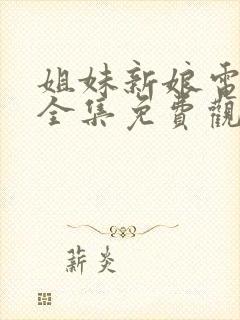 姐妹新娘電
全集免費觀
薪炎